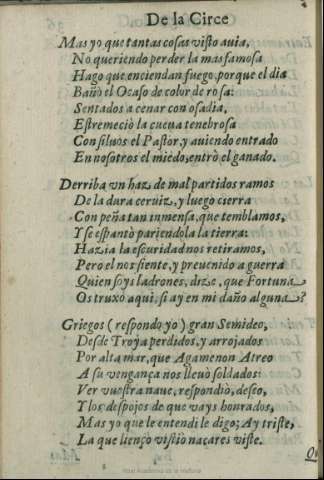 De la Circe
Mas yo que tantas cosas visto auia,
No queriendo perder la mas famosa
Hago que enciendan fuego, porque el dia
Bañò el Ocaso de color de rosa:
Sentados a cenar con osadia,
Estremeciò la cueua tenebrosa
Con siluos el Pastor, y auiendo entrado
En nosotros el miedo, entrò el ganado.
Derriba vn haz de mal partidos ramos
De la dura ceruiz, y luego cierra
Con peña tan inmensa, que temblamos,
Y se espantò pariendola la tierra:
Hazia la escuridad nos retiramos,
Pero el nos siente, y preuenido a guerra
Quien soys ladrones, dize, que Fortuna
Os truxo aqui, si ay en mi daño alguna?
Griegos (respondo yo) gran Semideo,
Desde Troya perdidos, y arrojados
Por alta mar, que Agamenon Atreo
A su vengança nos lleuò soldados:
Ver vuestra naue, respondiò, deseo,
Y los despojos de que vays honrados,
Mas yo que le entendi le digo; Ay triste,
La que lienço vistiò nacares viste.
Real Academia de la Historia